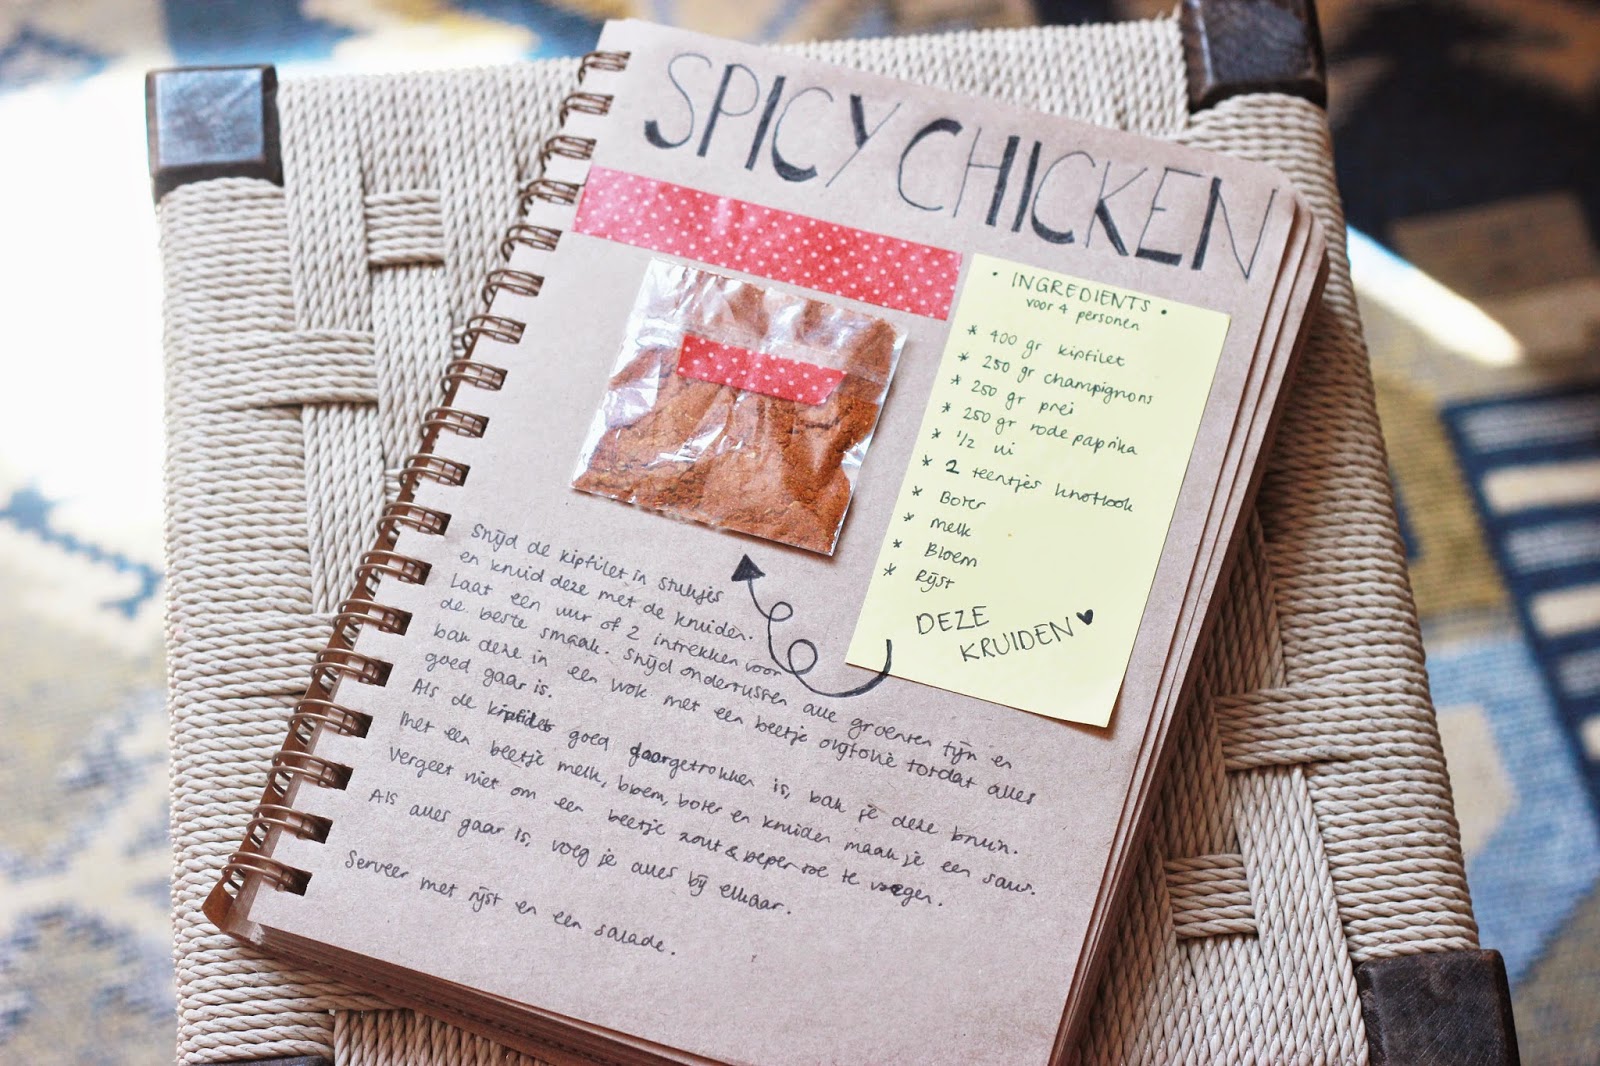 SPICY CHICKEN
• INGREDIENTS •
voor 4 personen
* 400 gr kipfilet
* 250 gr champignons
* 250 gr prei
* 250 gr rode paprika
* 1/2 ui
* 2 teentjes knoflook
* Boter
* melk
* Bloem
* Rijst
DEZE
KRUIDEN ♥
Snijd de kipfilet in stukjes
en kruid deze met de kruiden.
Laat een uur of 2 intrekken voor
de beste smaak. Snijd ondertussen alle groenten fijn en
bak deze in een wok met een beetje olijfolie totdat alles
goed gaar is.
Als de kipfilet goed doorgetrokken is, bak je deze bruin.
Met een beetje melk, bloem, boter en kruiden maak je een saus.
Vergeet niet om een beetje zout & peper toe te voegen.
Als alles gaar is, voeg je alles bij elkaar.
Serveer met rijst en een salade.